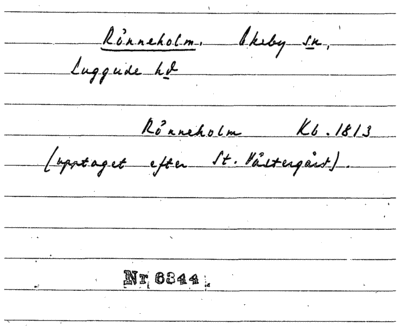 Rönneholm. Ekeby sn,
Luggude hd
Rönneholm Kb. 1813
(upptaget efter St. Västergård).
Nr 6844